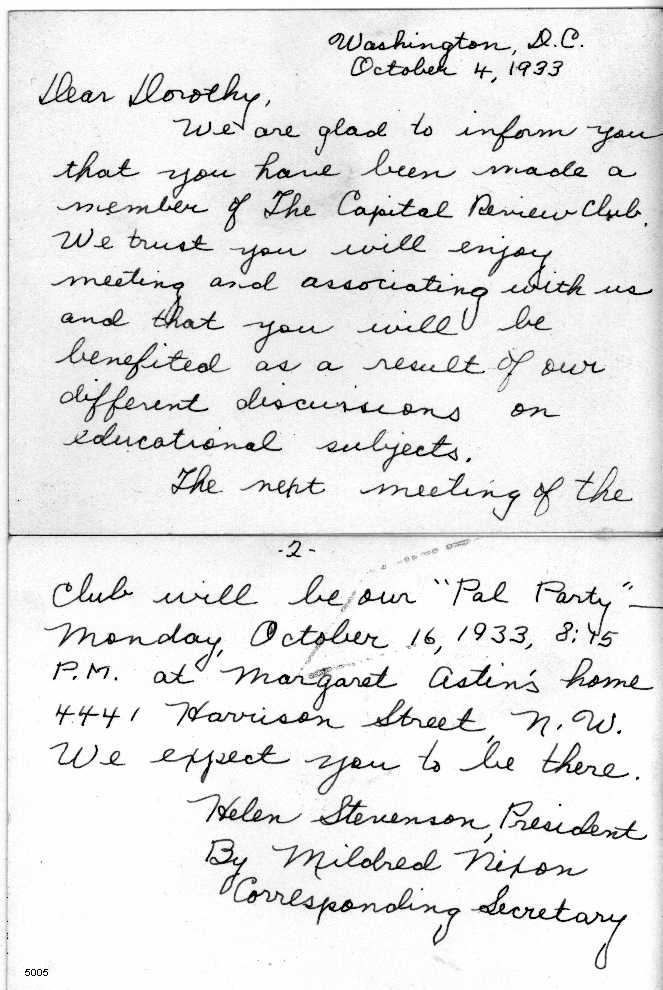 Washington, D.C.
October 4, 1933
Dear Dorothy,
We are glad to inform you
that you have been made a
member of The Capital Review Club.
We trust you will enjoy
meeting and associating with us
and that you will be
benefited as a result of our
different discussions on
educational subjects.
The next meeting of the
-2-
club will be our "Pal Party" —
Monday, October 16, 1933, 8:15
P.M. at Margaret Astin's home
4441 Harrison Street, N.W.
We expect you to be there.
Helen Stevenson, President
By Mildred Nixon
Corresponding Secretary
5005